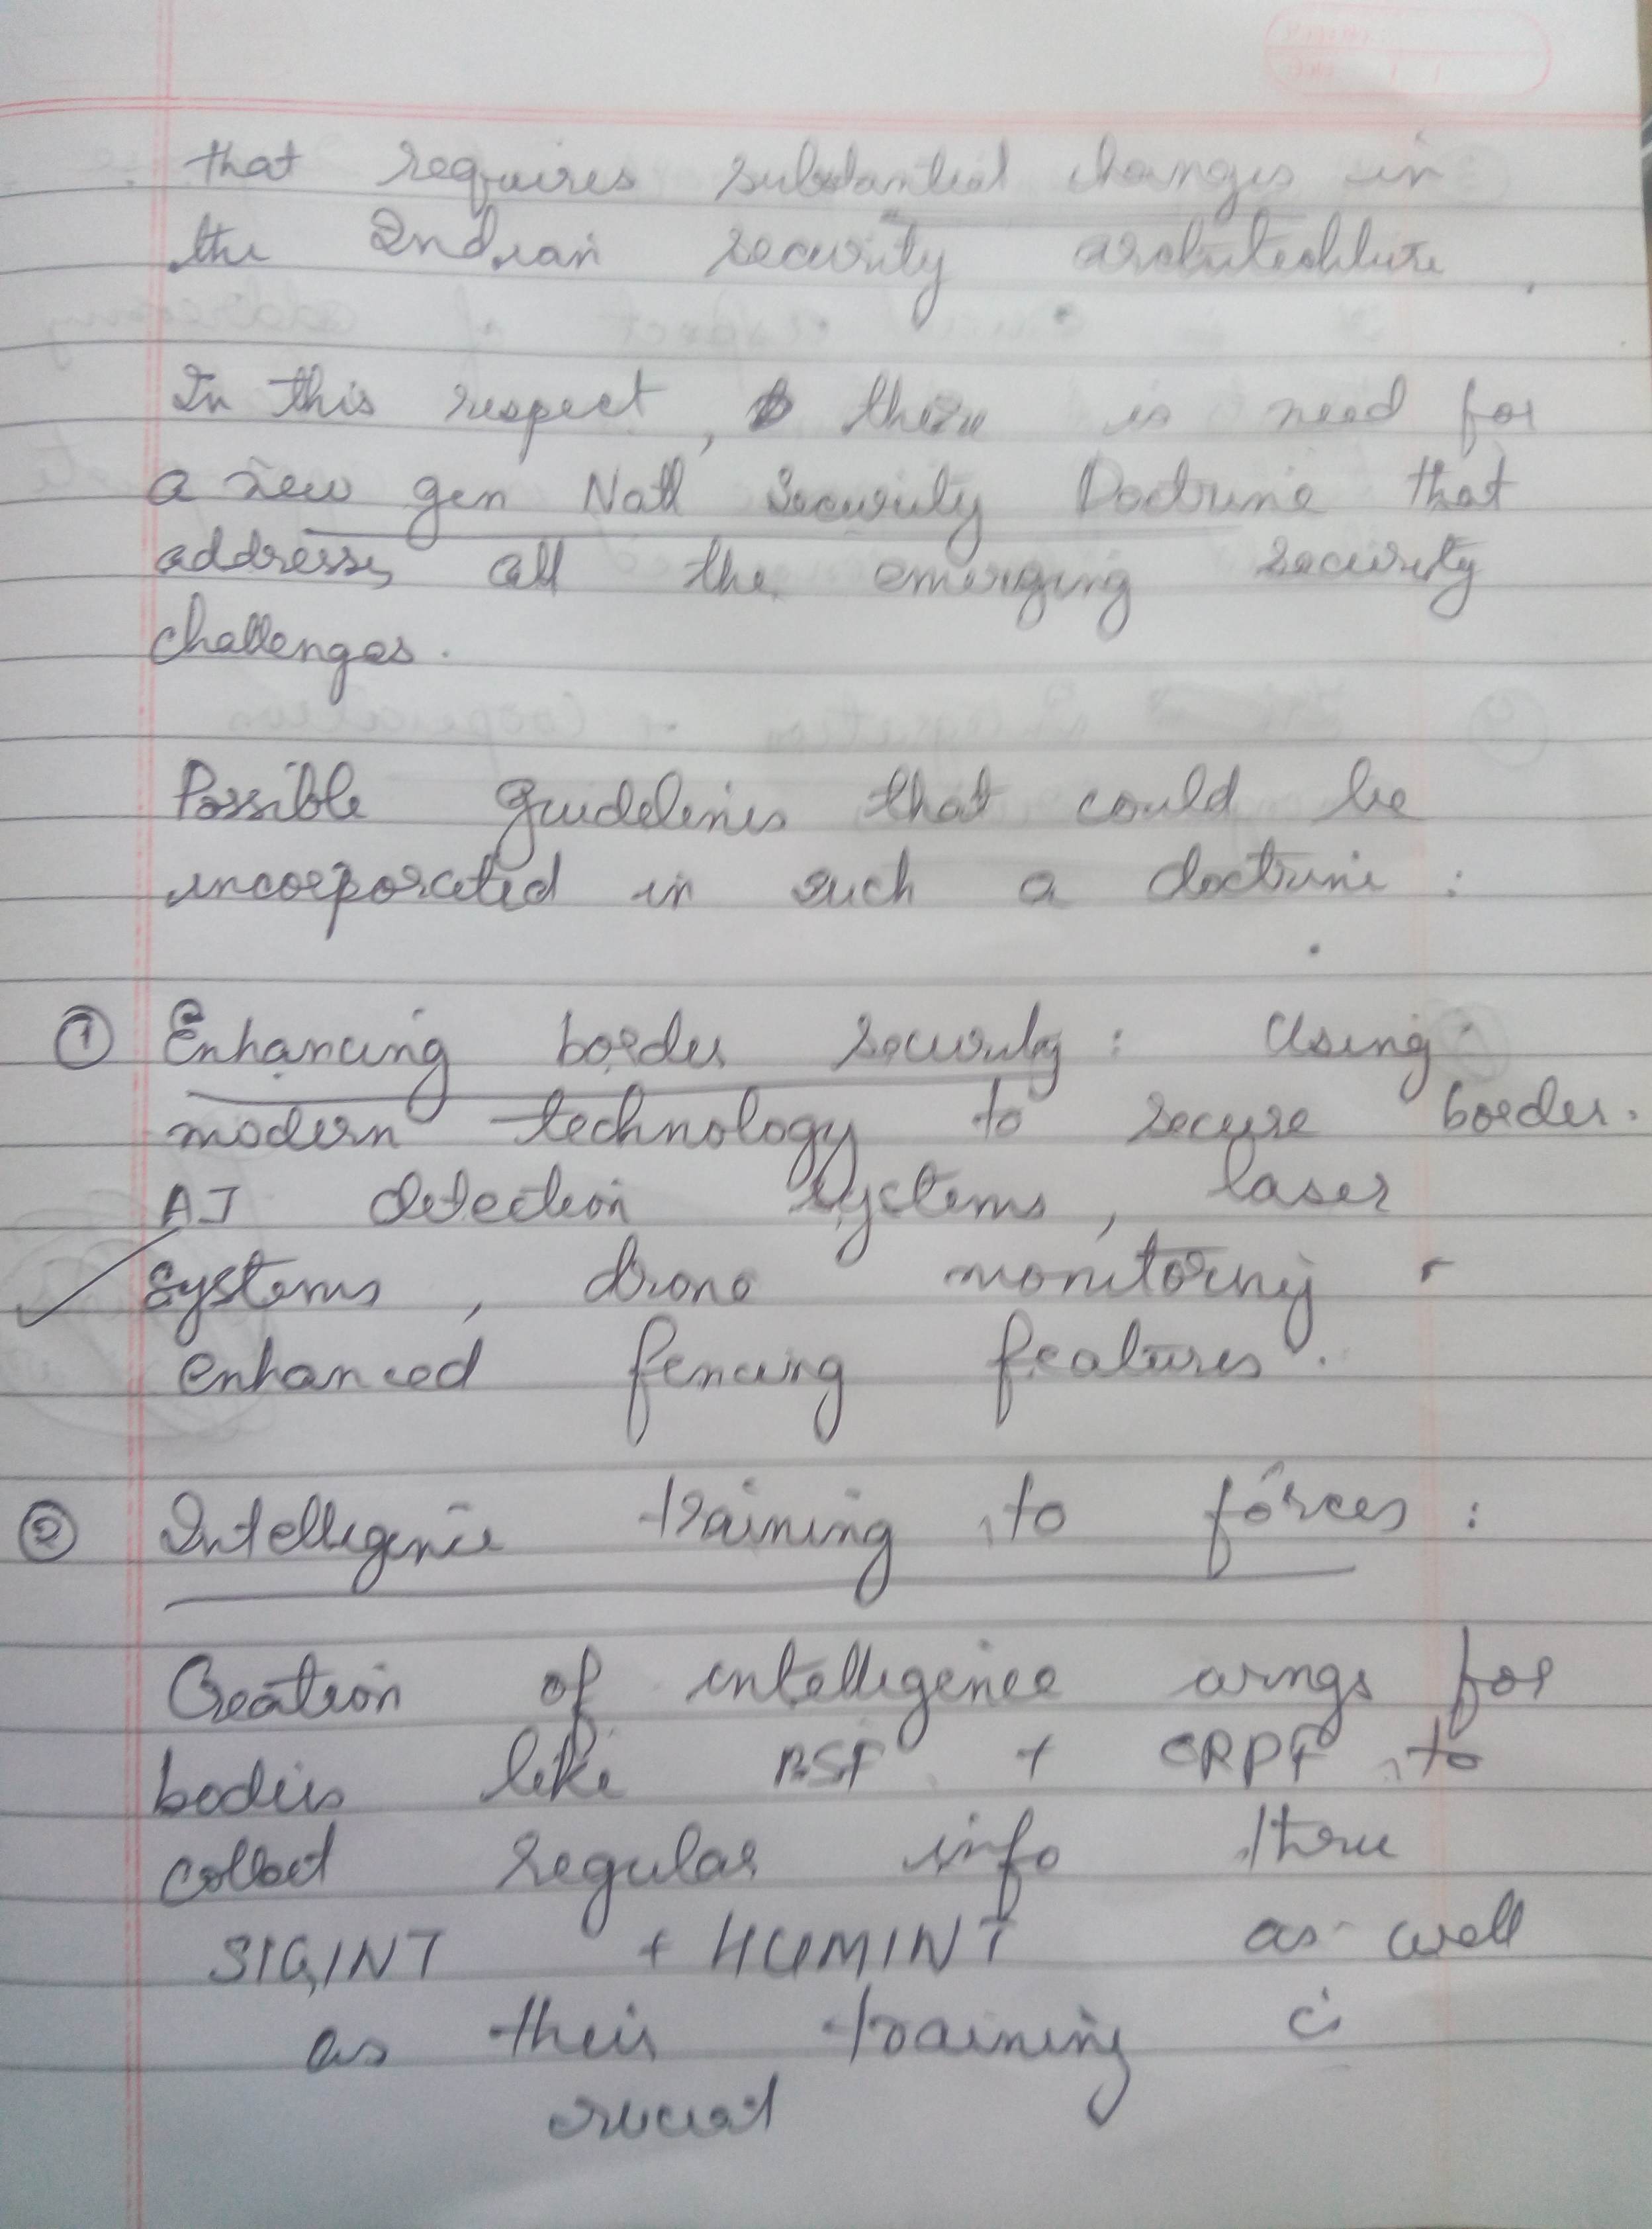 that requires substantial changes in
the Indian security architechture.
In this respect, there is need for
a new gen Natl Security Doctrine that
addresses all the emerging security
challenges.
Possible guidelines that could be
incorporated in such a doctrine :
① Enhancing border security : Using
modern technology to secure border.
AI detection systems, laser
systems, drone monitoring +
enhanced fencing features.
② Intelligence training to forces :
Creation of intelligence wings for
bodies like BSF + CRPF to
collect regular info thru
SIGINT + HUMINT as well
as their training is
crucial